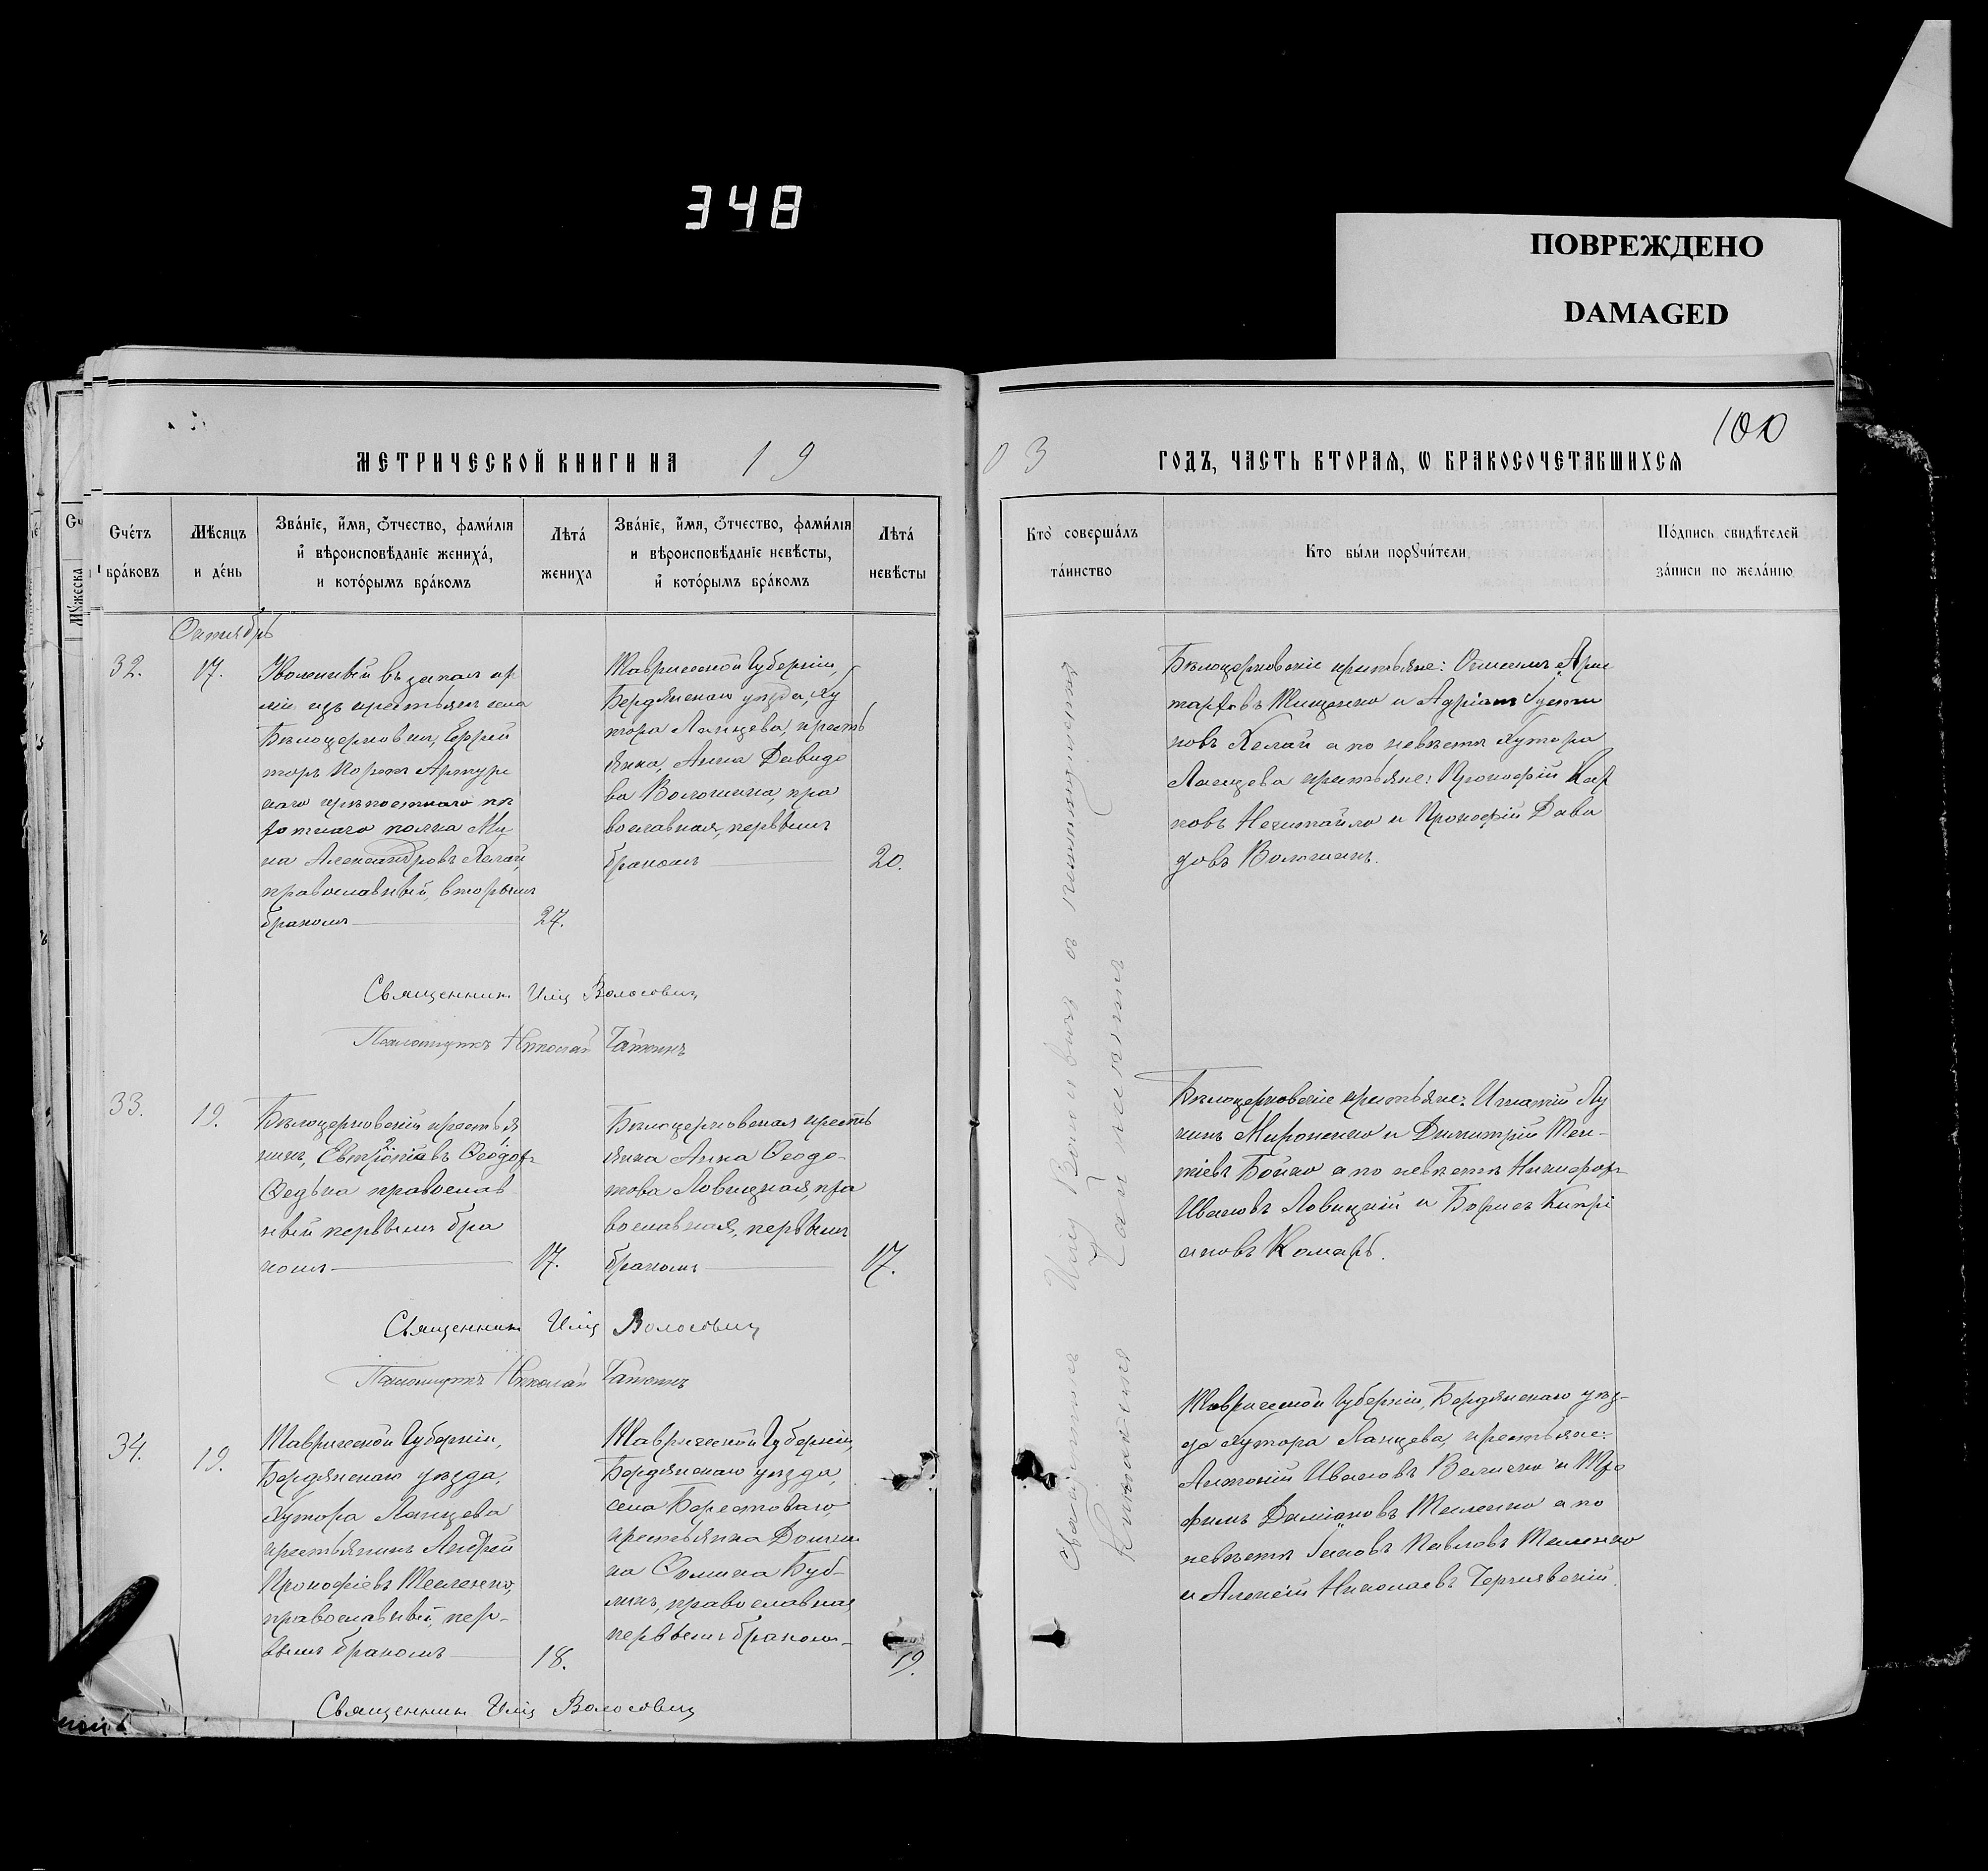 348
ПОВРЕЖДЕНО
DAMAGED
100
МЕТРИЧЕСКОЙ КНИГИ НА 19
03 ГОДЪ, ЧАСТЬ ВТОРАЯ, Ѡ БРАКОСОЧЕТАВШИХСЯ
Счетъ браковъ
Мѣсяцъ и день
Званіе, имя, ѻтчество, фамилія и вѣроисповѣданіе жениха, и которымъ бракомъ
Лѣта жениха
Званіе, имя, ѻтчество, фамилія и вѣроисповѣданіе невѣсты, и которымъ бракомъ
Лѣта невѣсты
Кто совершалъ таинство
Кто были поручители
Подпись свидѣтелей записи по желанію
Октябрь
32.
17.
Уволенный въ запасъ ар
міи изъ крестьянъ села
Бѣлоцерковки, Ефрей
торъ Портъ Артурс
каго крѣпостнаго пѣ
хотнаго полка Ми
на Александровъ Хелай,
православный, вторымъ
бракомъ
27.
Таврической Губерніи,
Бердянскаго уѣзда, ху
тора Ланцева, кресть
янка, Анна Давидо
ва Волошина, пра
вославная, первымъ
бракомъ
20.
Бѣлоцерковскіе крестьяне:
Тищенко и Адріанъ
новъ Хелай а по невѣстѣ хутора
Ланцева крестьяне: Прокофій Кар
повъ Нечитайло и Прокофій Дави
довъ Волошинъ.
Священникъ Илія Волосовичъ
Псаломщикъ Николай
33.
19.
Бѣлоцерковскій крестья
нинъ, Евтропій Ѳеодор
Ѳедъка православ
ный первымъ бра
комъ
17.
Бѣлоцерковская кресть
янка Анна Ѳеодо
това Ловицкая, пра
вославная, первымъ
бракомъ
17.
Бѣлоцерковскіе крестьяне: Игнатій Лу
кинъ Мироненко и Димитрій Мен-
тіевъ Бойко а по невѣстѣ Никифоръ
Ивановъ Ловицкій и Борисъ Кипрі
ановъ Комаръ.
Священникъ Илія Волосовичъ
Псаломщикъ Николай
34.
19.
Таврической Губерніи,
Бердянскаго уѣзда,
хутора Ланцева
крестьянинъ Андрей
Прокофіевъ Теленко,
православный, пер-
вымъ бракомъ
18.
Таврической Губерніи,
Бердянскаго уѣзда,
села Берестоваго,
крестьянка Домни
ка Ѳомина
православная
первымъ бракомъ
19.
Таврической Губерніи, Бердянскаго уѣз-
да хутора Ланцева крестьяне:
Антоній Ивановъ Величко и Тро
фимъ Даміановъ Теленко а по
невѣстѣ Іаковъ Павловъ Теленко
и Алексѣй Николаевъ Чернявскій.
Священникъ Илія Волосовичъ